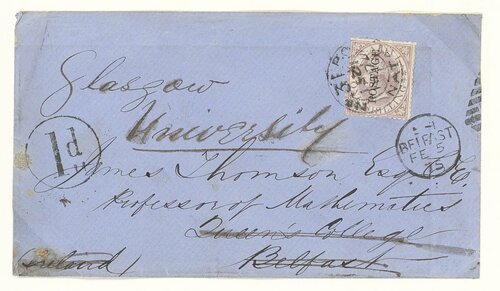 Glasgow
University
James Thomson Esq C.E.
Professor of Mathematics
Queen's College
Belfast
(Ireland)
1d
POSTAGE
NATAL
BELFAST
FE 5
75